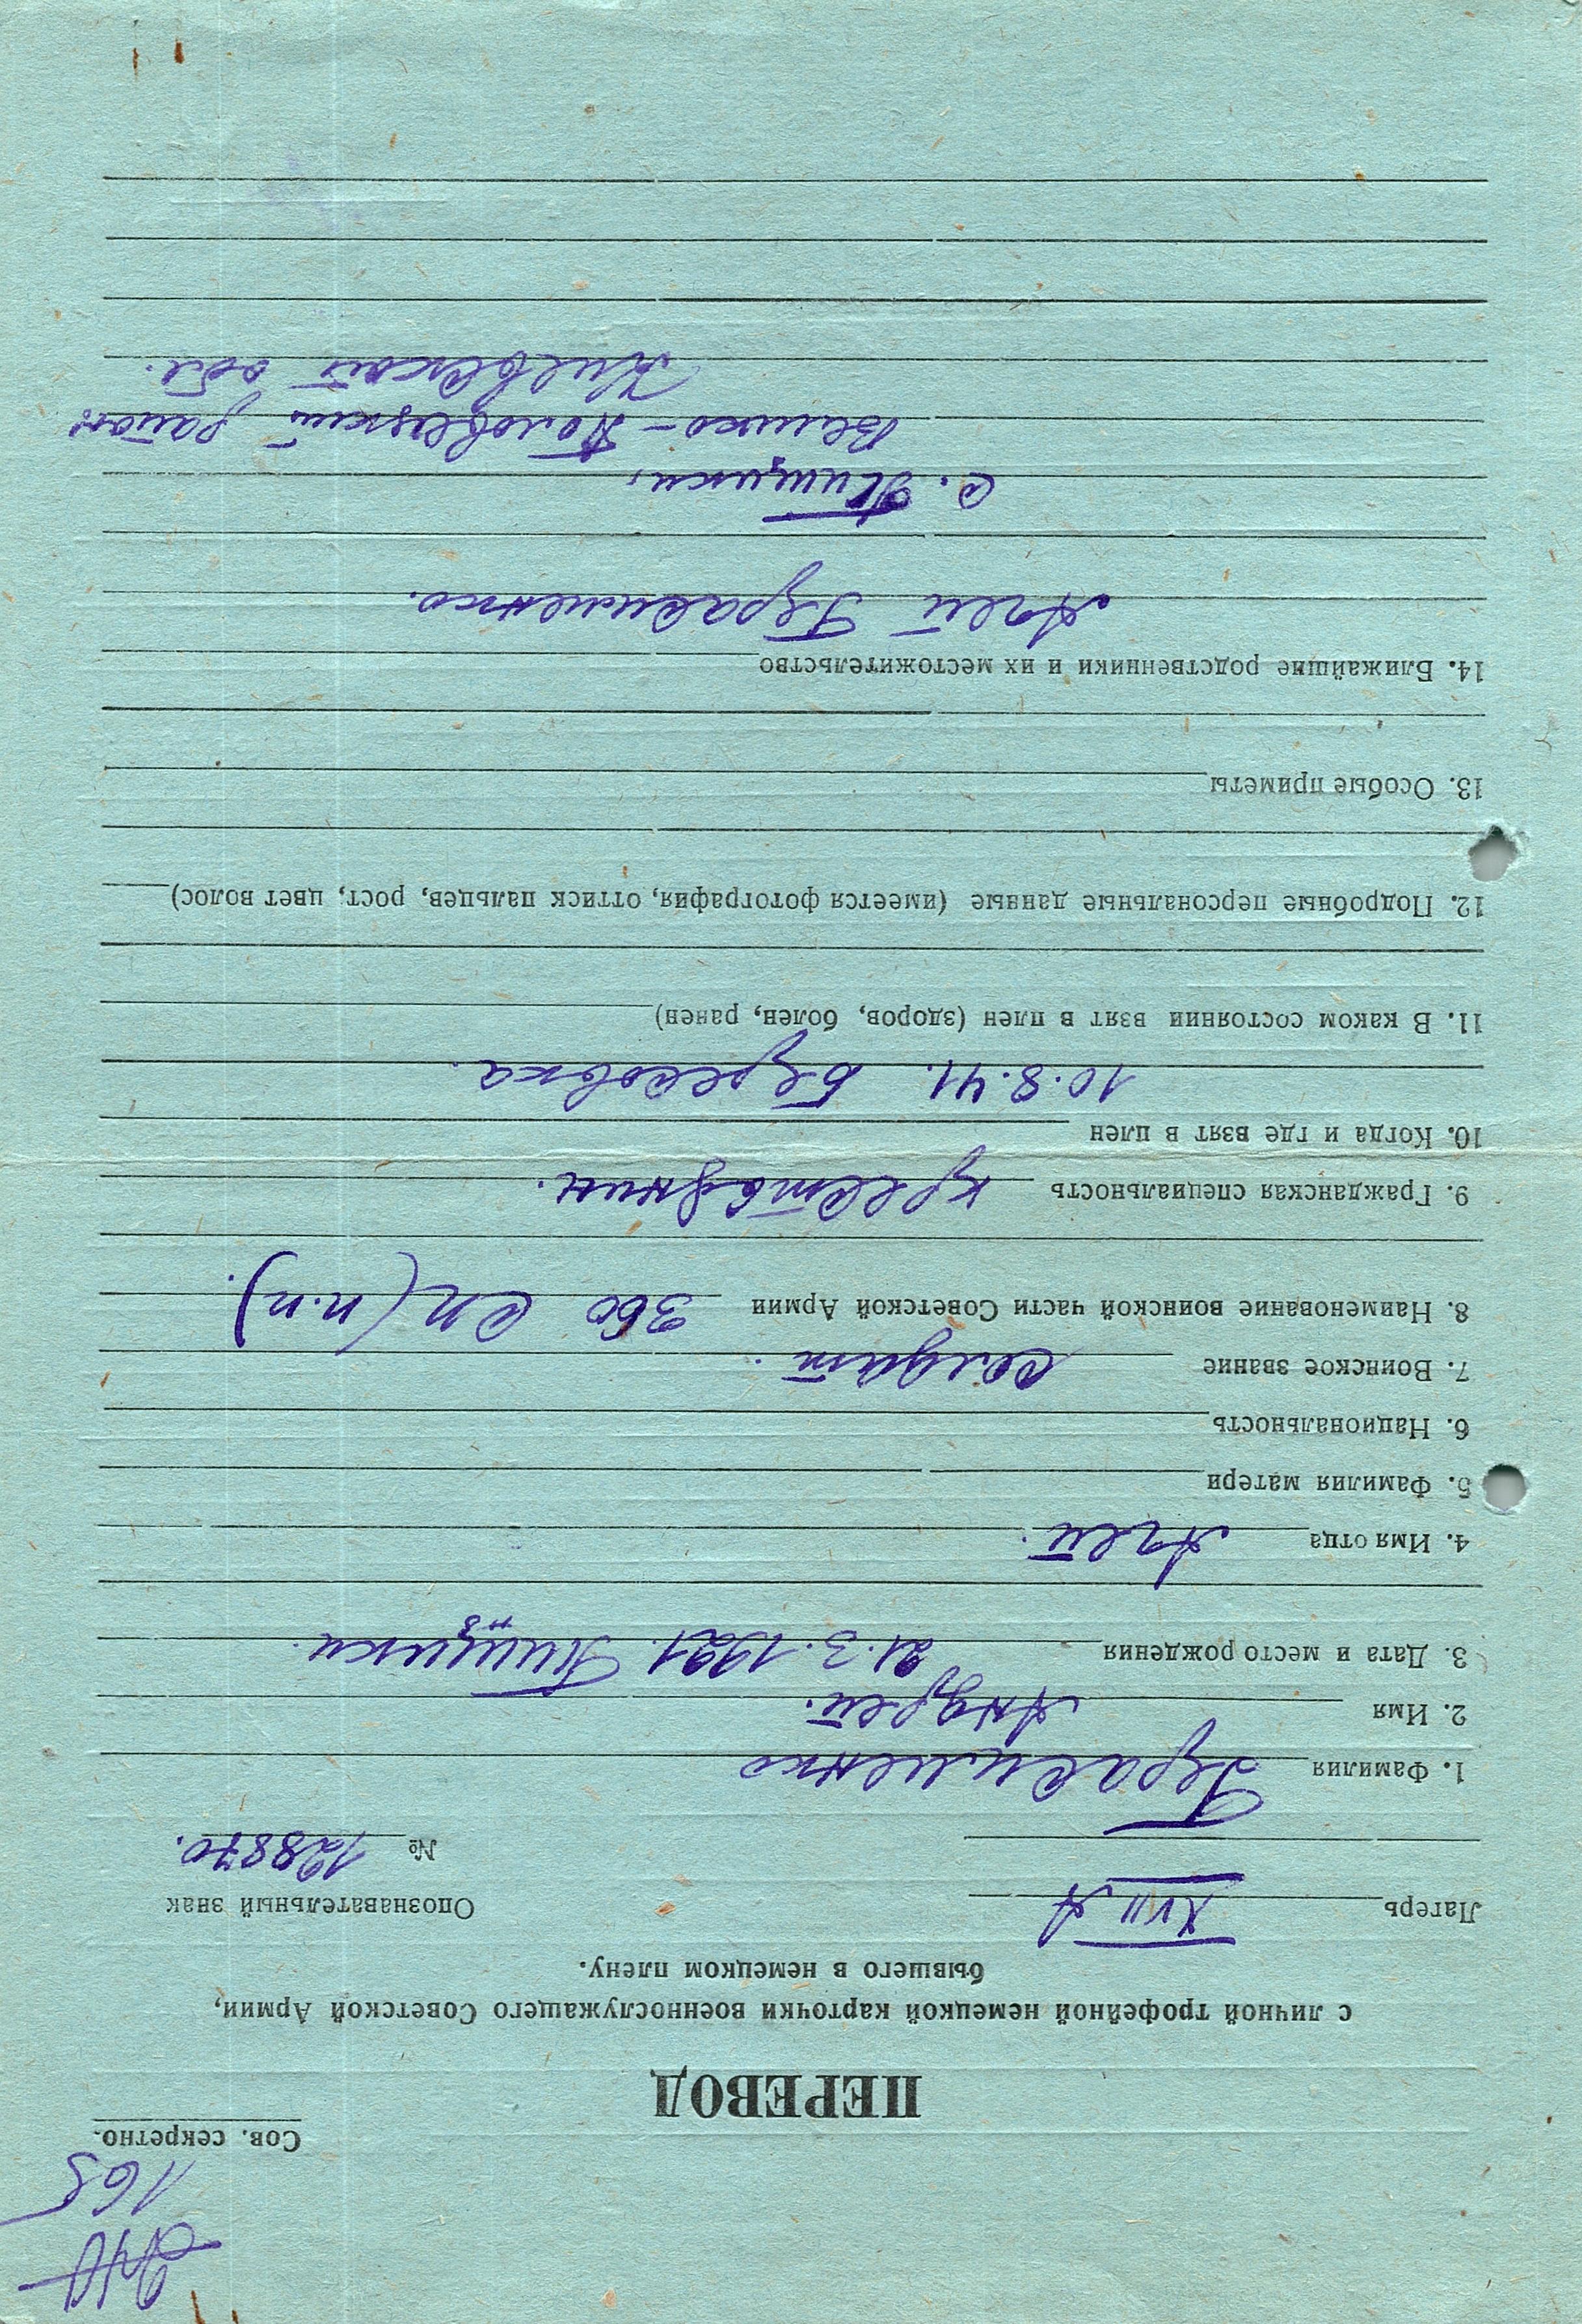 165
Сов. секретно.
ПЕРЕВОД
с личной трофейной немецкой карточки военнослужащего Советской Армии,
бывшего в немецком плену.
Лагерь XVII A
Опознавательный знак
№ 128870.
1. Фамилия Герасименко
2. Имя Андрей.
3. Дата и место рождения 21.3.1921. Пищики.
4. Имя отца Агей.
5. Фамилия матери
6. Национальность
7. Воинское звание солдат.
8. Наименование воинской части Советской Армии 360 сп (п.п).
9. Гражданская специальность крестьянин.
10. Когда и где взят в плен
10.8.41. Березовка.
11. В каком состоянии взят в плен (здоров, болен, ранен)
12. Подробные персональные данные (имеется фотография, оттиск пальцев, рост, цвет волос)
13. Особые приметы
14. Ближайшие родственники и их местожительство
Агей Герасименко.
с. Пищики,
Велико-Половецкий район
Киевской обл.